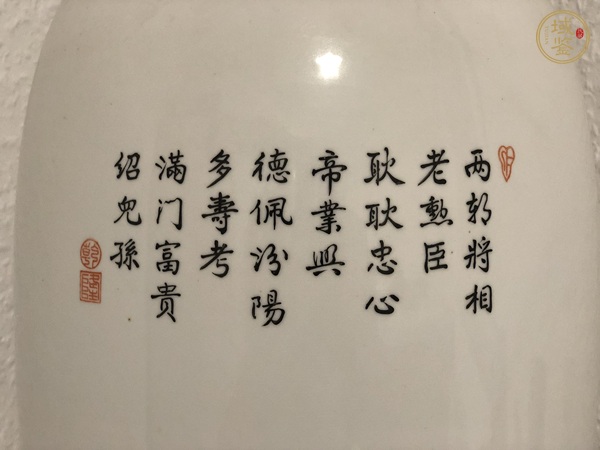 两朝將相
老勲臣
耿耿忠心
帝業興
德佩汾陽
多壽考
滿门富貴
绍兒孫
域鉴